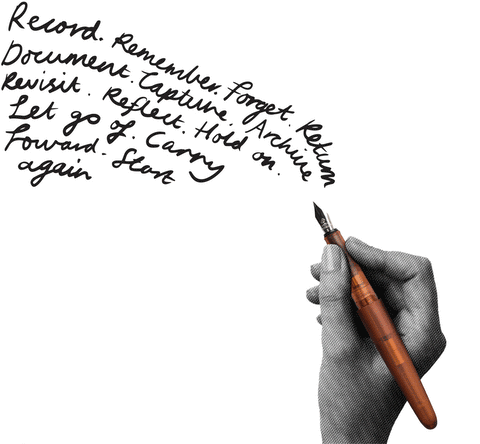 Record. Remember. Forget. Return
Document. Capture. Archive
Revisit. Reflect. Hold on.
Let go of. Carry
Forward. Start
again